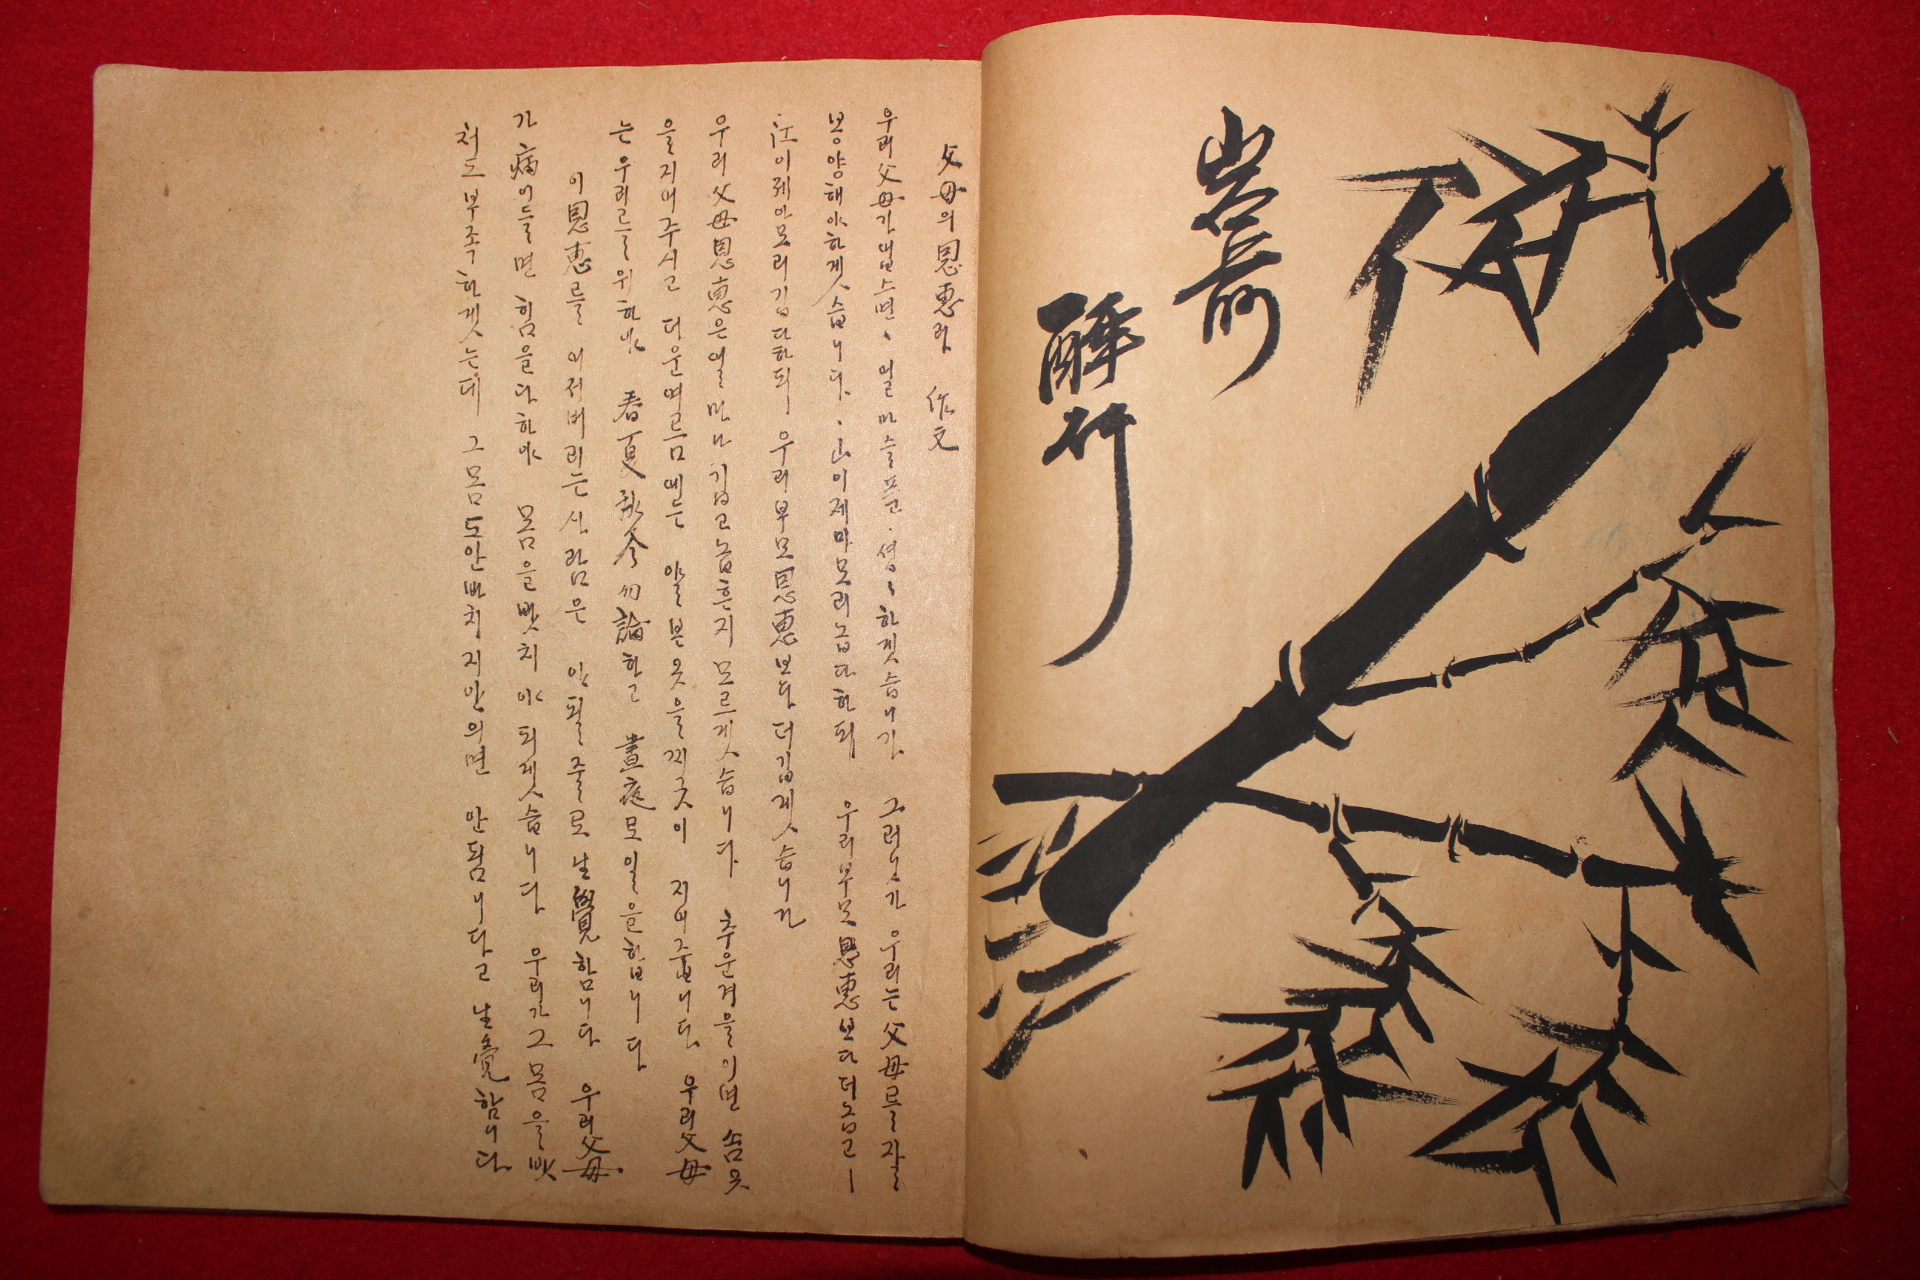 醉竹
父母의 恩惠라 作文
우리父母가 업스면、얼마 슬푼、셩〻하겟슴니가 그러니가 우리는 父母를 잘
봉양해야하겟슴니다、山이제아모리놉다하되 우리부모恩惠보다더놉고ㅣ
江이제아모리깁다하되 우리부모恩惠보다 더깁겟슴니가
우리父母恩惠은얼마나 깁고놉흔지 모르겟슴니다 추운겨을이면 솜옷
을지여주시고 더운여름에는 얄분옷을깨긋이 지여줍니다 우리父母
는우리를위하야 春夏秋冬勿論하고 晝夜로일을합니다
이恩惠를 이저버리는사람은 안될줄로生覺함니다 우리父母
가 病이들면 힘을다하야 몸을밧치야되겟슴니다 우리가그몸을밧
처도부족하겟는데 그몸도안바치지안의면 안됨니다고 生覺함니다